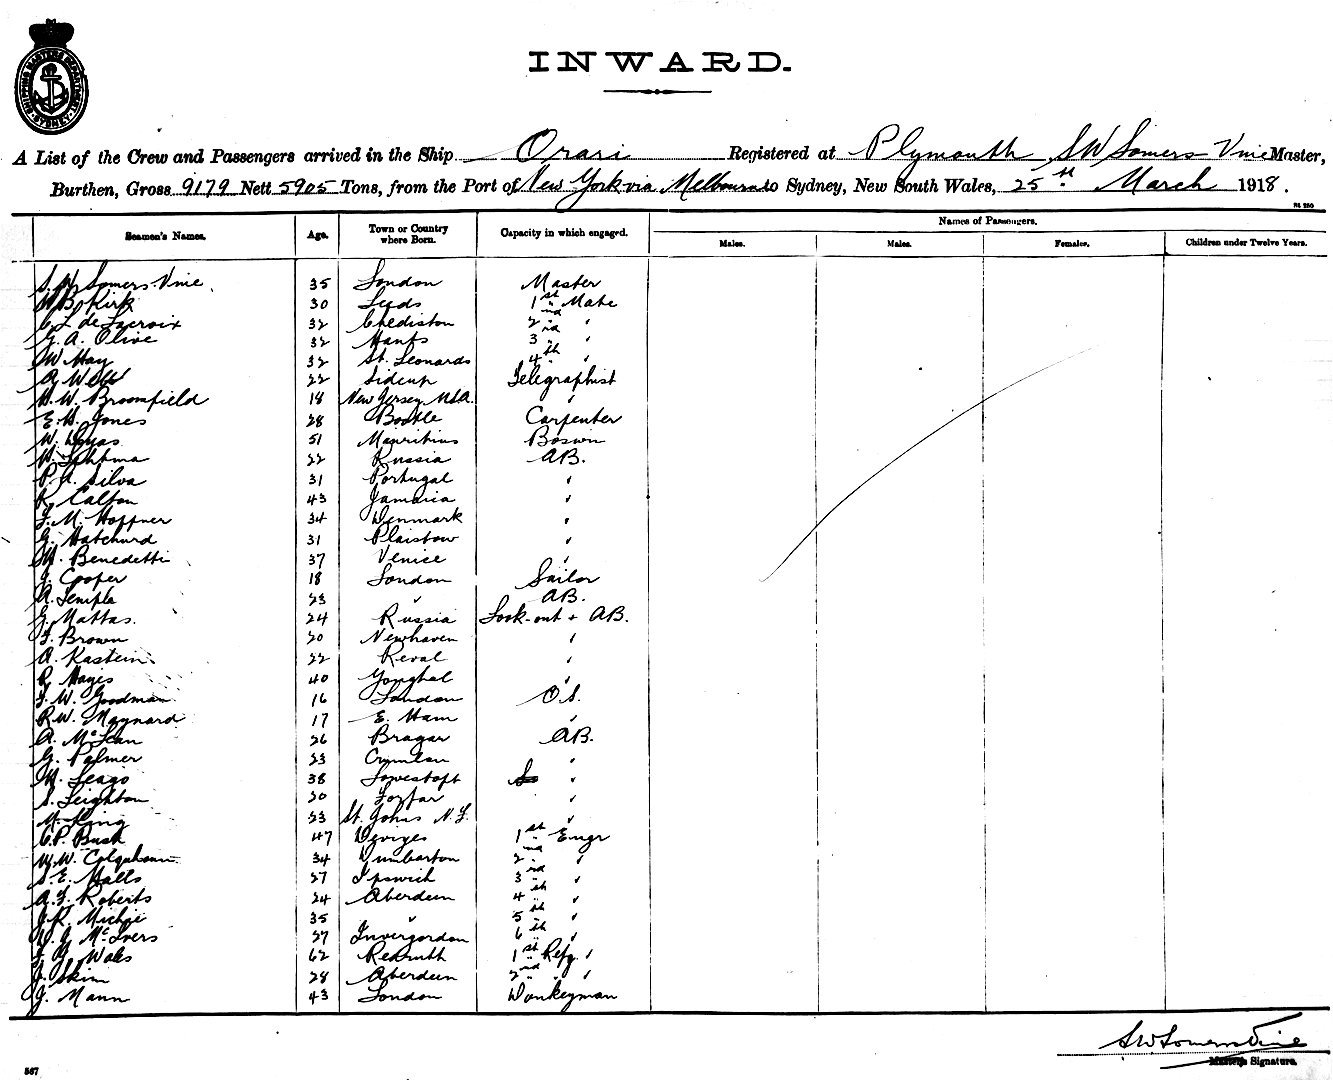 SHIPPING MASTERS DEPARTMENT SYDNEY
INWARD.
A List of the Crew and Passengers arrived in the Ship Orari Registered at Plymouth, S W Somers-Vine Master,
Burthen, Gross 9179 Nett 5905 Tons, from the Port of New York via Melbourne to Sydney, New South Wales, 25th March 1918.
Seamen's Names. Age. Town or Country where Born. Capacity in which engaged. Names of Passengers.
Males. Males. Females. Children under Twelve Years.
S. W. Somers-Vine 35 London Master
W. B. Kirk 30 Leeds 1st Mate
C. L. de Lacroix 32 Chediston 2nd "
G. A. Olive 32 Hants 3rd "
W. May 32 St. Leonards 4th "
A. Webb 22 Sidcup Telegraphist
H. W. Broomfield 18 New Jersey U.S.A. "
E. H. Jones 28 Bootle Carpenter
W. 51 Mauritius Boswn
22 Russia A.B.
P. A. Silva 31 Portugal "
R. Calton 43 Jamaica "
F. M. Hoffner 34 Denmark "
G. Hatchard 31 Plaistow "
M. Benedetti 37 Venice "
J. Cooper 18 London Sailor
A. Temple 23 " A.B.
G. Mattas. 24 Russia Look-out + A.B.
F. Brown 20 Newhaven "
A. Kastein 22 Reval "
R. Hayes 40 Youghal "
F. W. Goodman 16 London O.S.
R. W. Maynard 17 E. Ham "
A. McLean 26 Bragar A.B.
G. Palmer 23 Crymlau "
M. Seago 38 Lowestoft "
S. Leighton 20 Forfar "
M. King 23 St. Johns N.F. "
C. P. Bush 47 Devizes 1st Engr
W. W. Colquhoun 34 Dumbarton 2nd "
S. E. Halls 27 Ipswich 3rd "
A. F. Roberts 24 Aberdeen 4th "
J. R. Michie 35 " 5th "
D. J. McIvers 27 Invergordon 6th "
J. G. Wales 62 Redruth 1st Refg "
J. Skim 28 Aberdeen 2nd " "
J. Mann 43 London Donkeyman
S W Somers Vine
Master's Signature.
567